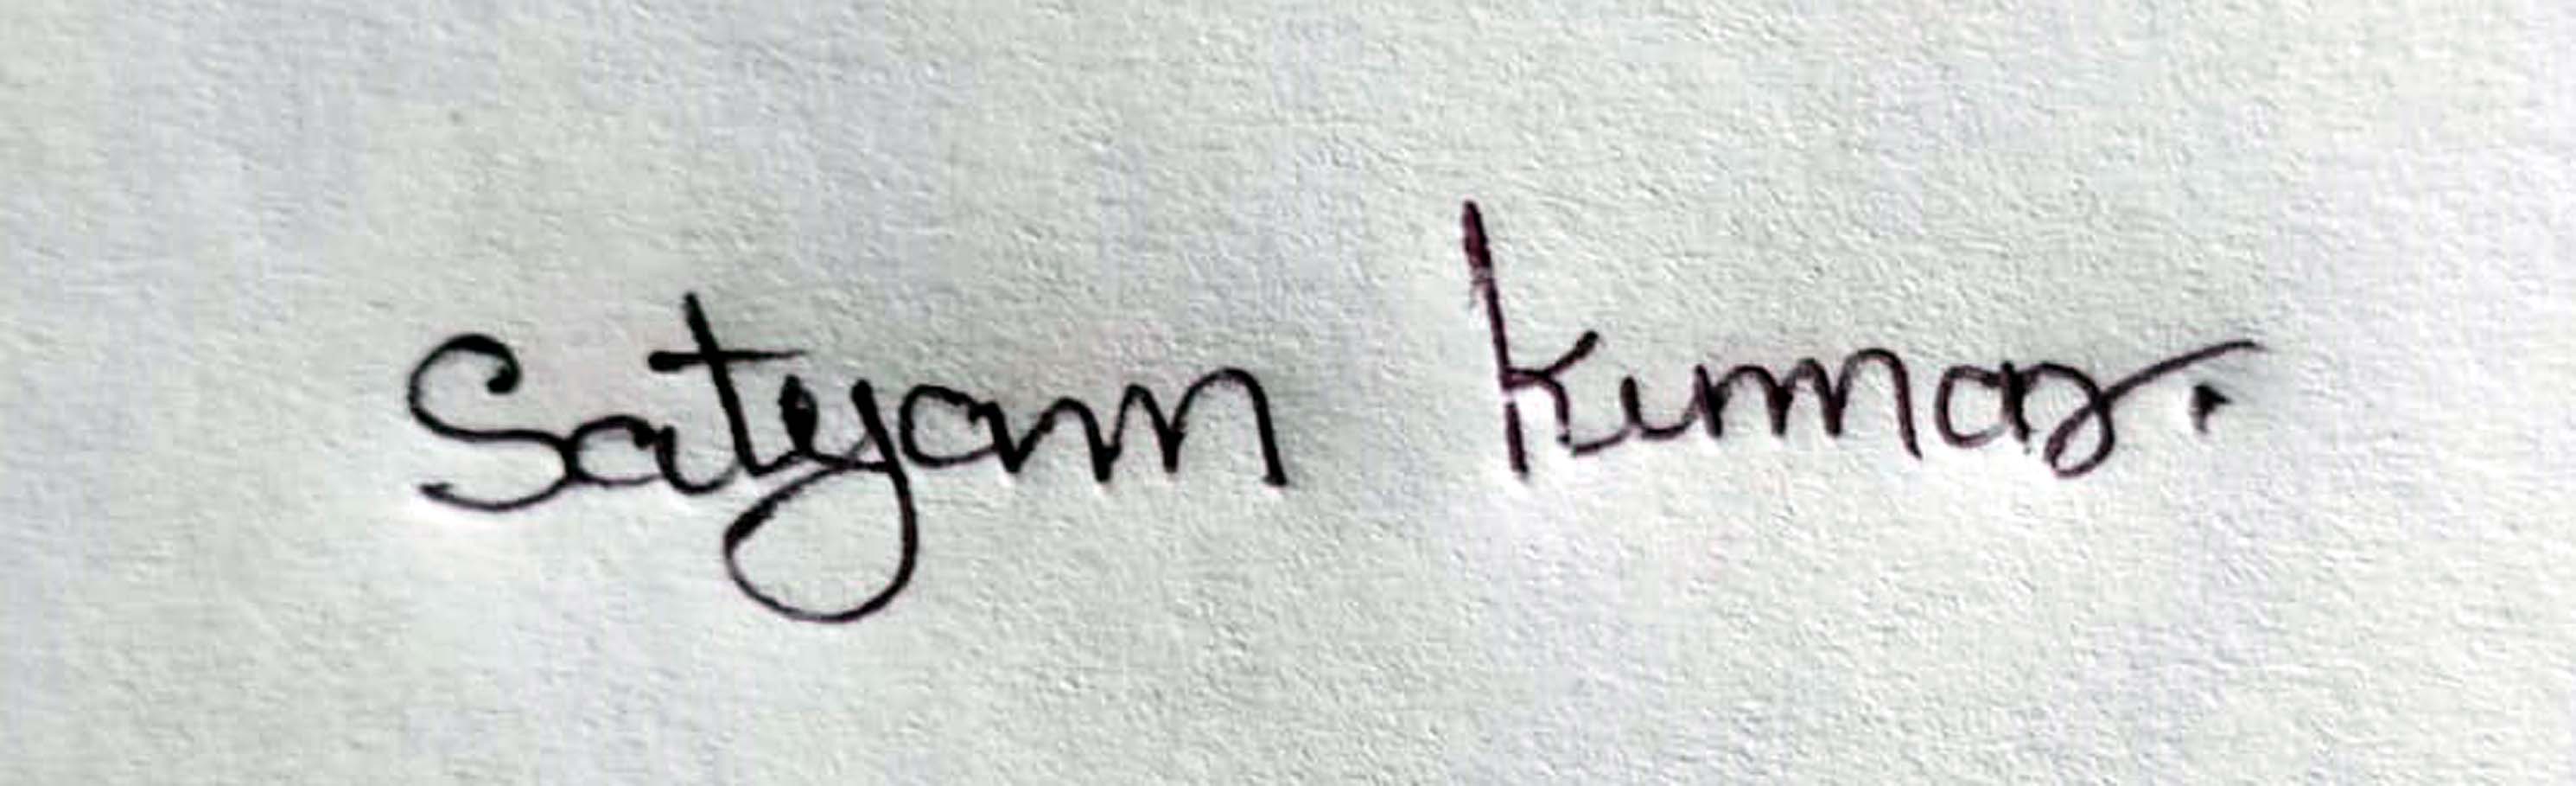 Satyam kumar.